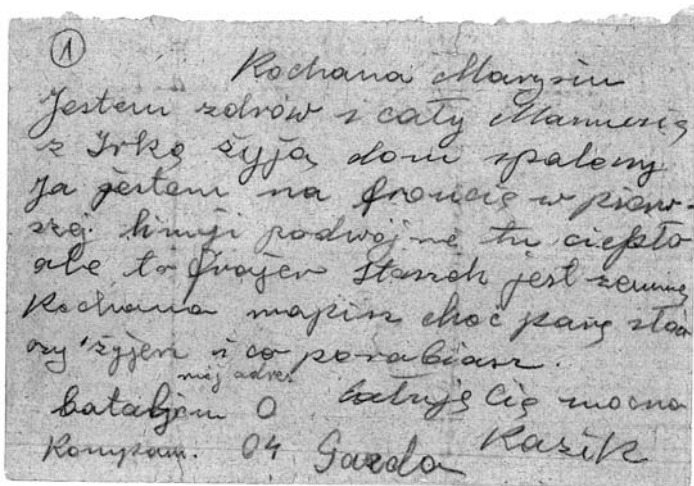 1
Kochana Marysiu
Jestem zdrów i cały Mamusia
z Irką żyją dom spalony
Ja jestem na froncie w pierw-
szej linji podwójne tu ciepło
ale to frajer Staszek jest zemną
Kochana napisz choć parę słów
czy żyjesz i co porabiasz.
mój adres
bataljon O Całuję Cię mocno
Kompan. 04 Gozdo Kazik